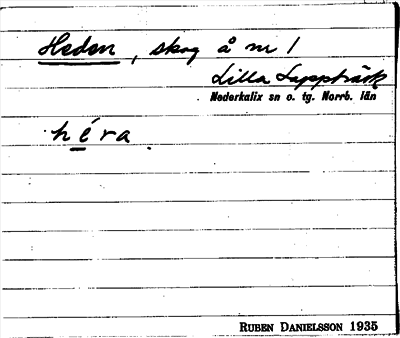 Heden, skog å nr 1
Lilla Lappträsk
Nederkalix sn o. tg. Norrb. län
héra.
RUBEN DANIELSSON 1935